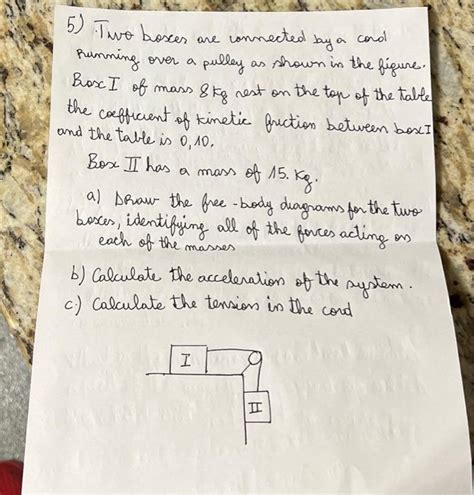 5) Two boxes are connected by a cord
running over a pulley as shown in the figure.
Box I of mass 8 kg rest on the top of the table
the coefficient of kinetic friction between box I
and the table is 0,10.
Box II has a mass of 15. Kg.
a) Draw the free-body diagrams for the two
boxes, identifying all of the forces acting on
each of the masses
b) Calculate the acceleration of the system.
c.) Calculate the tension in the cord
I
II